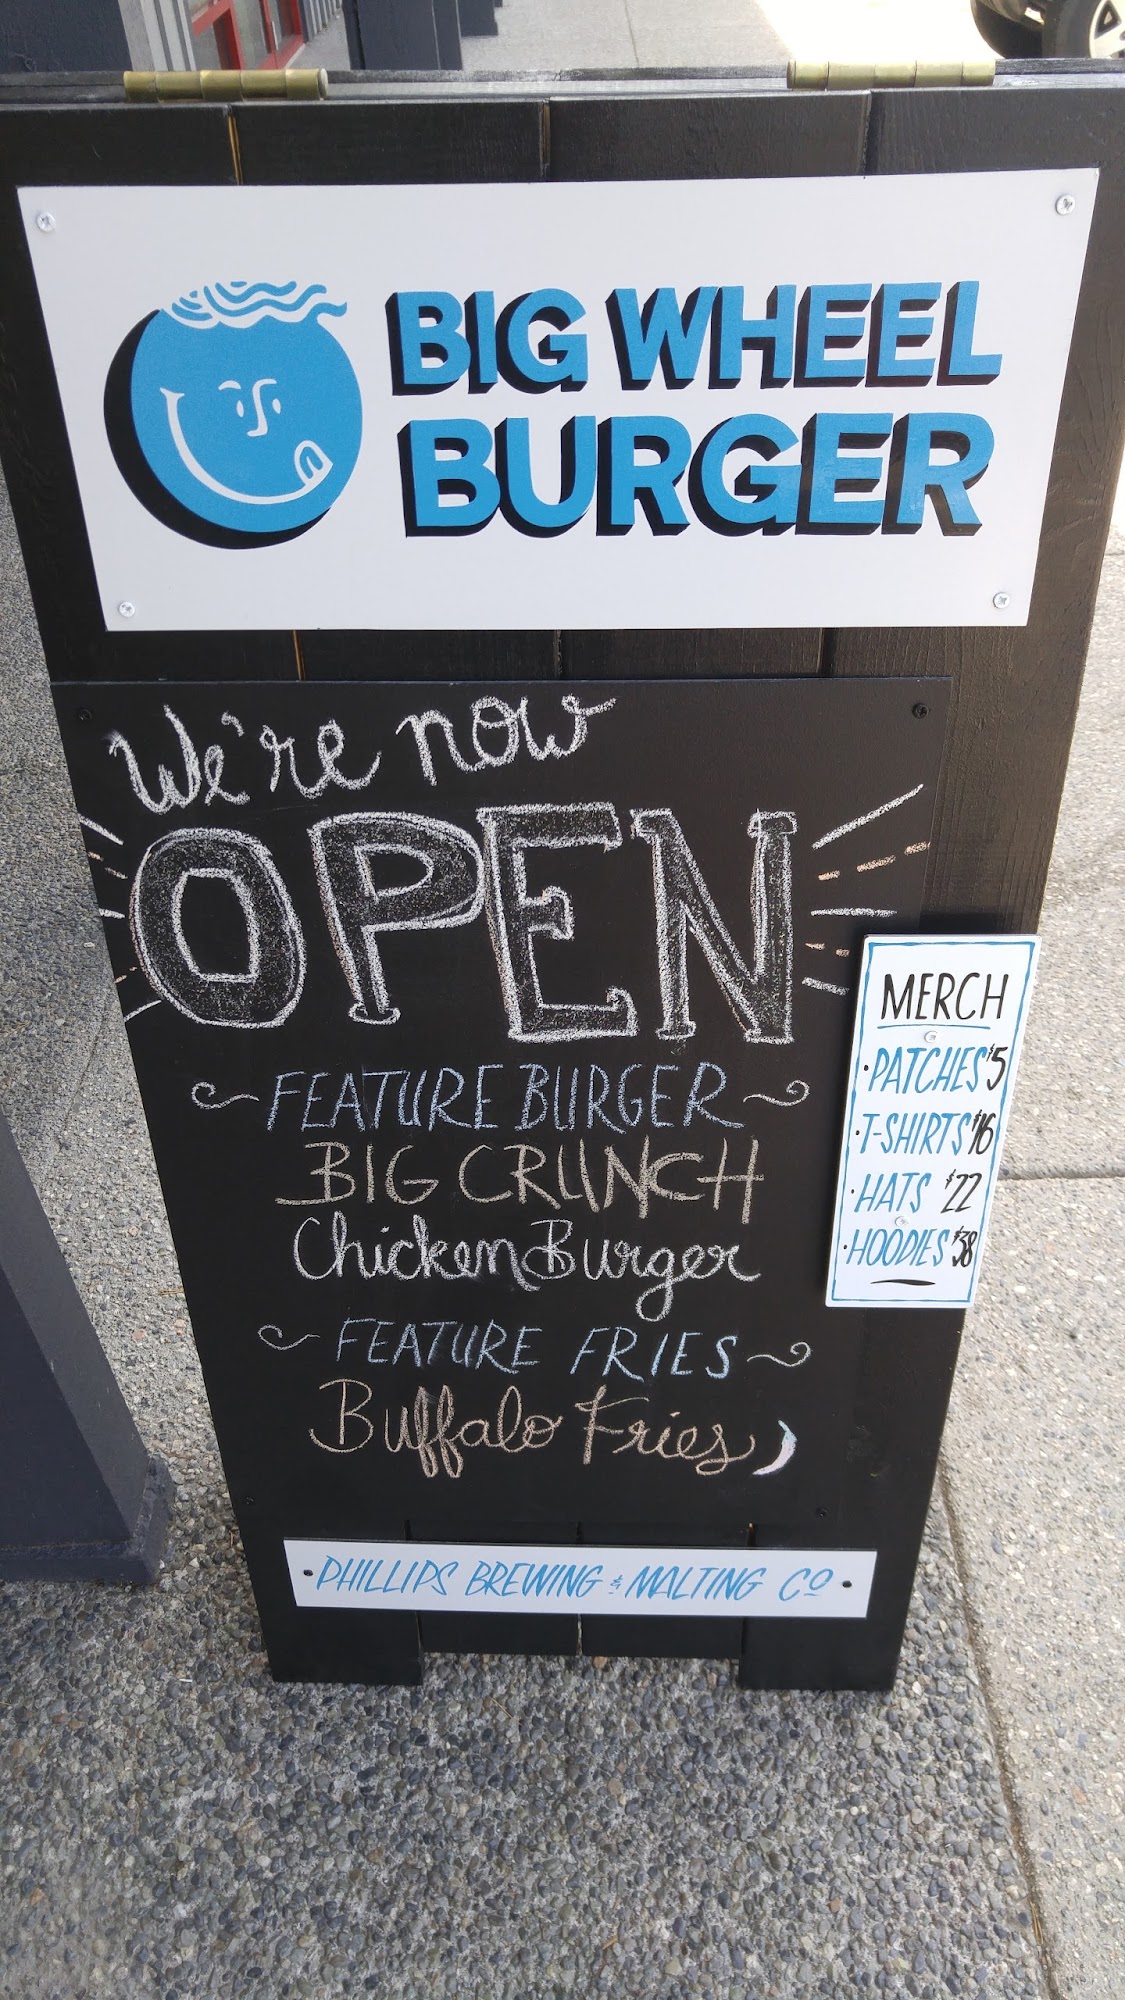 BIG WHEEL
BURGER
We're now
OPEN
~FEATURE BURGER~
BIG CRUNCH
Chicken Burger
~FEATURE FRIES~
Buffalo Fries
MERCH
·PATCHES $5
·T-SHIRTS $16
·HATS $22
·HOODIES $38
·PHILLIPS BREWING & MALTING Cº·